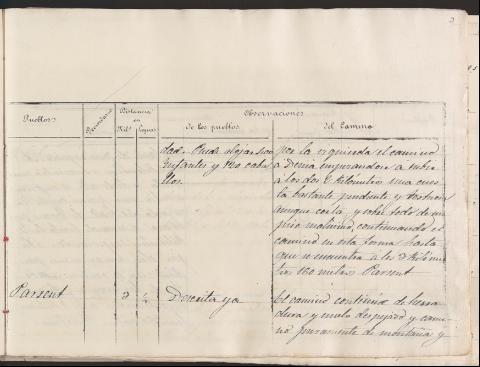 Pueblos
Vecindario
Distancia
en
Kils
Leguas
Observaciones
de los pueblos
del Camino
dad. Puede alojar 500
Infantes y 120 caba
llos.
por la izquierda el camino
a Denia empezandose a subir
á los dos Kilómetros una cues
ta bastante pendiente y
aunque corta, y sobre todo de un
piso malisimo, continuando el
camino en esta forma hasta
que se encuentra á los 3 Kilóme
tros 160 metros Parsent
Parsent
3
Descrita ya
El camino continúa de herra
dura y malo despejado y cami-
no puramente de montaña y